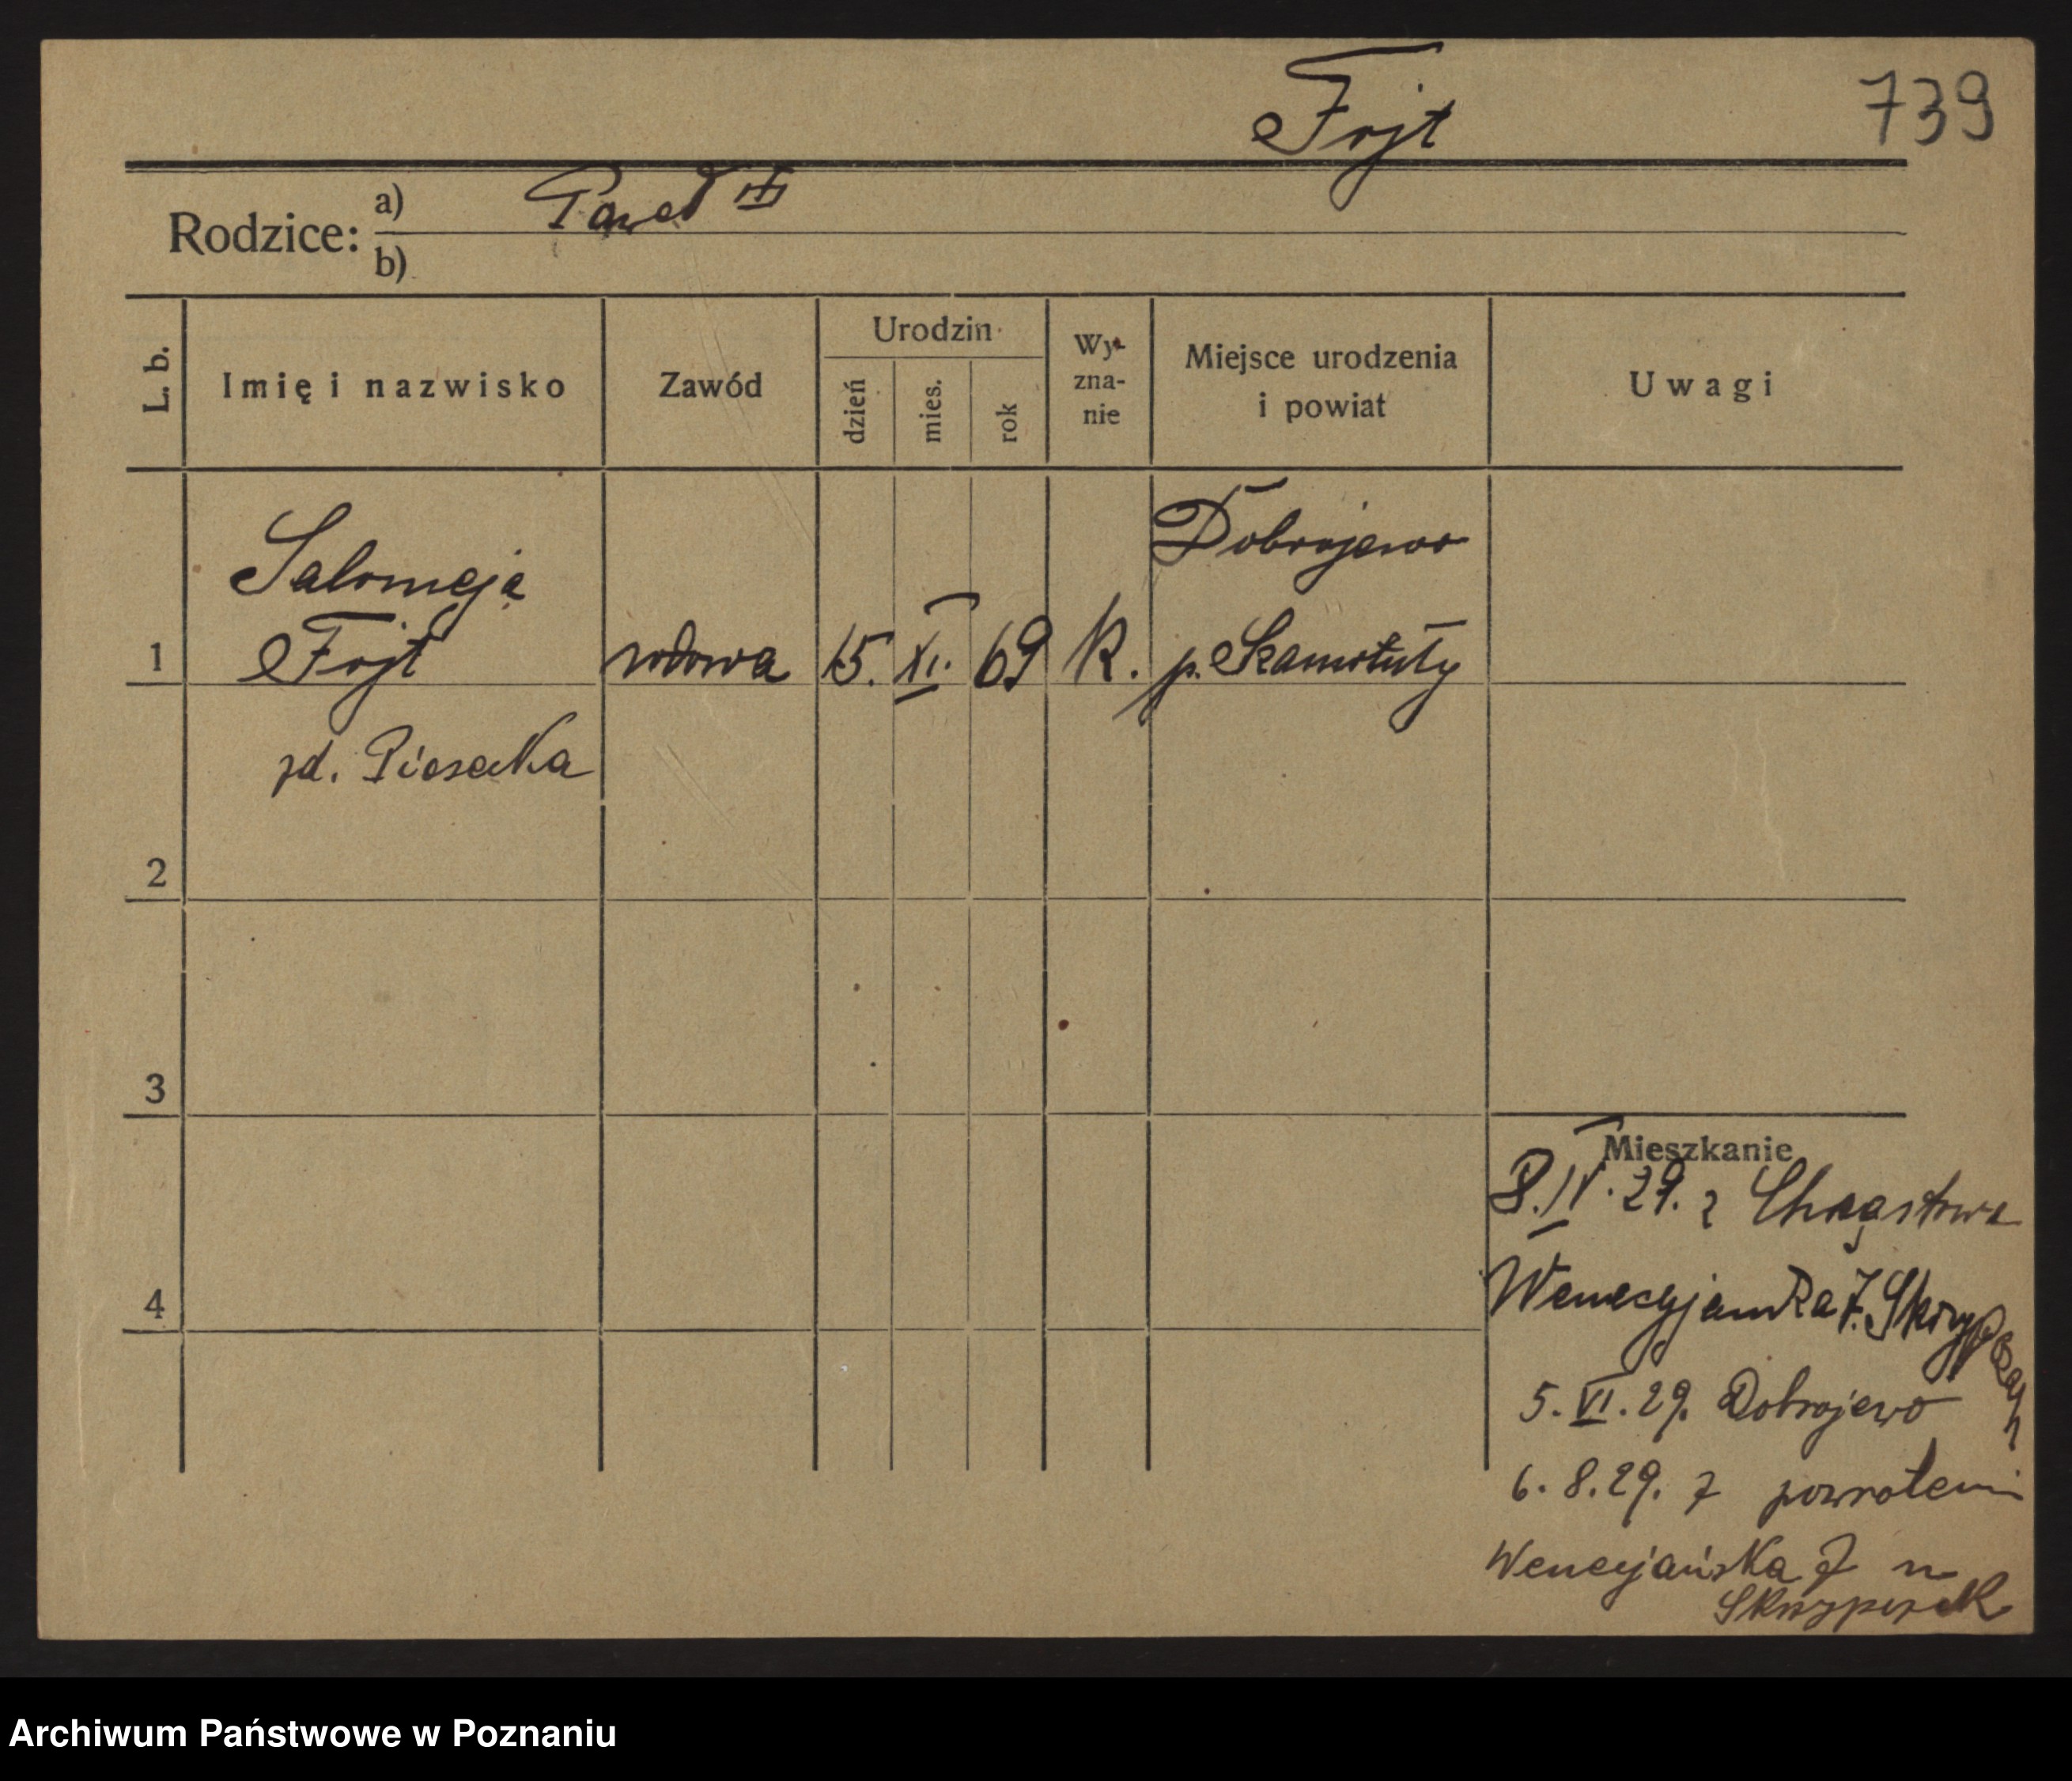 Fojt
739
Rodzice: a) Paweł
b)
L. b.
Imię i nazwisko
Zawód
Urodzin
dzień
mies.
rok
Wy-
zna-
nie
Miejsce urodzenia
i powiat
Uwagi
Salomeja
Fojt
zd. Piosecka
1
wdowa
15.
XI.
69
K.
Dobrojewo
p. Szamotuły
2
3
4
Mieszkanie
8.IV.29. z
7.
5.VI.29. Dobrojewo
6.8.29. z powrotem
Wenecjańska 7